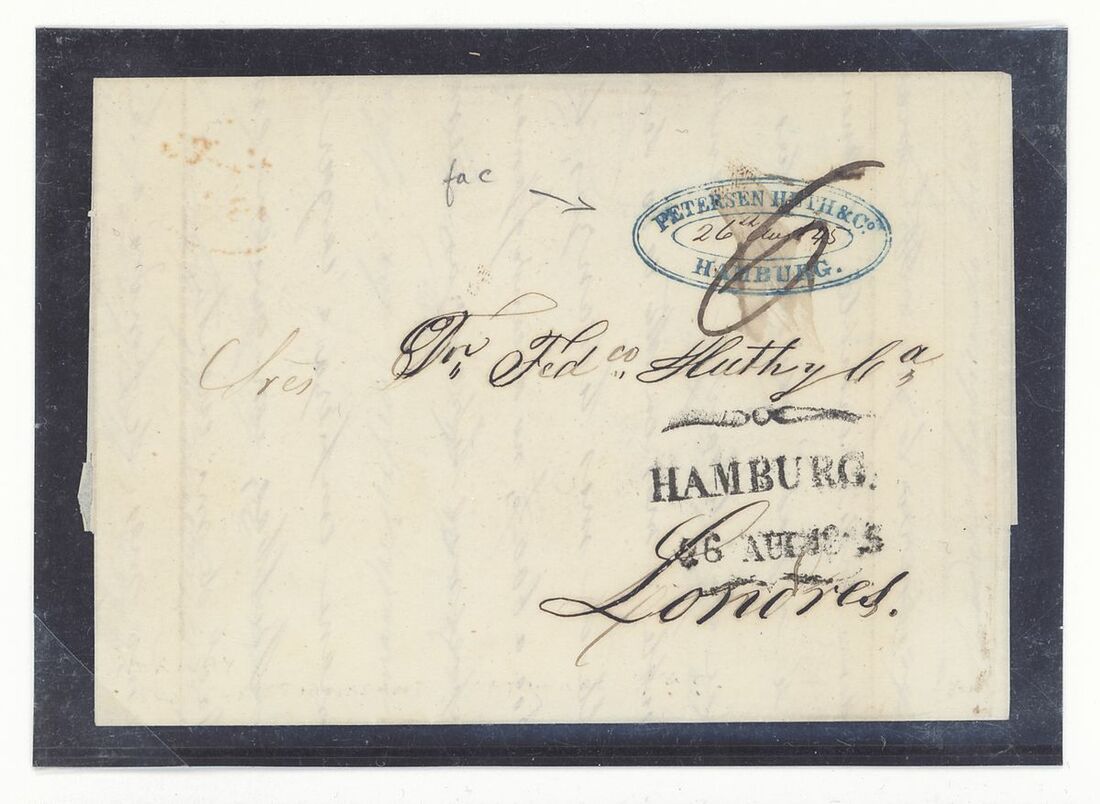 fac
PETERSEN HUTH & Co.
26th Aug 45
HAMBURG.
6
Sres Dn Fedco Huth y Ca
HAMBURG.
26 AUG 1845
Londres.